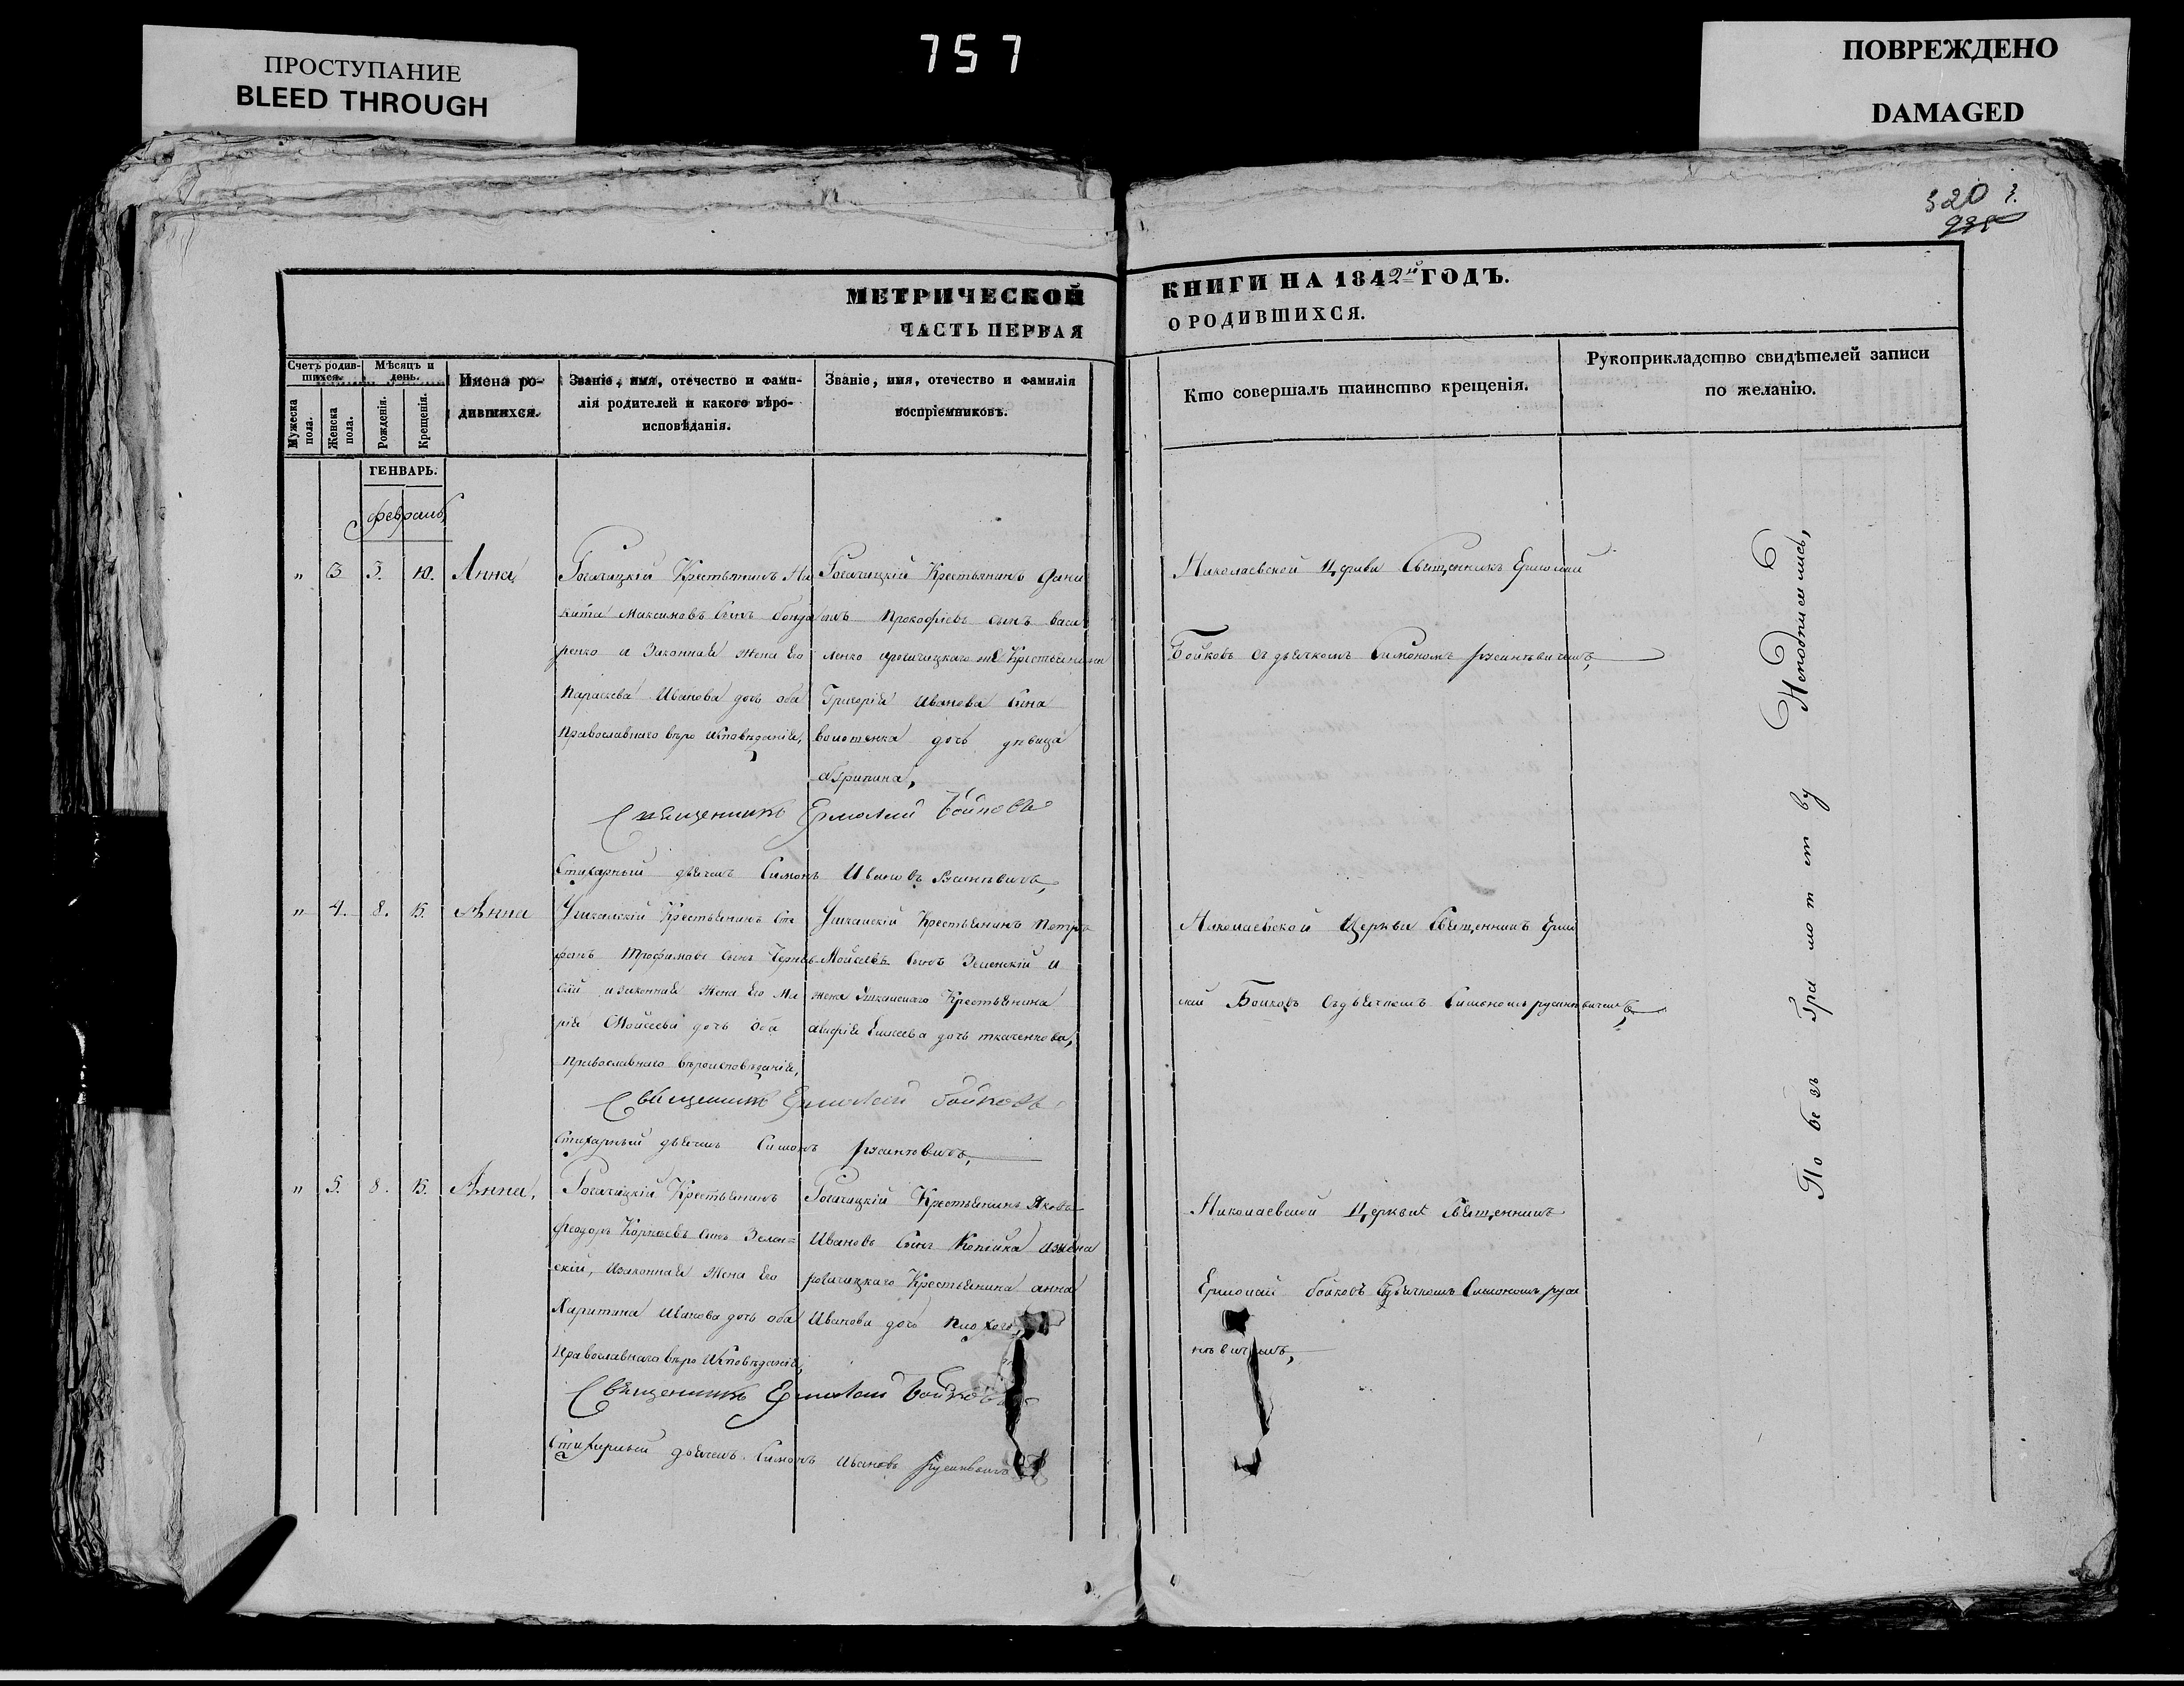 ПРОСТУПАНИЕ
BLEED THROUGH
757
ПОВРЕЖДЕНО
DAMAGED
320
МЕТРИЧЕСКОЙ
ЧАСТЬ ПЕРВАЯ
КНИГИ НА 1842й ГОДЪ.
О РОДИВШИХСЯ.
Счетъ родив-
шихся.
Мужеска пола.
Женска пола.
Мѣсяцъ и
день.
Рожденія.
Крещенія.
Имена ро-
дившихся.
Званіе, имя, отечество и фами-
лія родителей и какого вѣро-
исповѣданія.
Званіе, имя, отечество и фамилія
воспріемниковъ.
Кто совершалъ таинство крещенія.
Рукоприкладство свидѣтелей записи
по желанію.
ГЕНВАРЬ.
февраль
" 3 5. 10. Анна,
Рогачицкій Крестьянинъ Ни
кита Максимовъ сынъ бонда
ренко и Законная жена его
Параскева Иванова дочь оба
Православнаго вѣро Исповѣданія,
Рогачицкій Крестьянинъ Дани
илъ Прокофіевъ сынъ васи
ленко рогачицкаго же Крестьянина
Григорія Иванова сына
дочь дѣвица
агрипина,
Николаевской Церкви Священникъ Ермолай
Бойковъ съ дьячкомъ Симономъ
Священникъ Ермолай Бойковъ
Стихарный дьячекъ Симонъ Ивановъ
" 4. 8. 15. Анна
Крестьянинъ Сте
фанъ Трофимовъ сынъ Чернев
скій и законная жена его Ма
рія Мойсеева дочь оба
православнаго вѣроисповѣданія,
Крестьянинъ Петръ
Мойсеевъ сынъ Зеленскій и
жена Крестьянина
дочь ткаченкова,
Николаевской Церкви Священникъ Ермо
лай Бойковъ съ дьячкомъ Симономъ
Священникъ Ермолай Бойковъ
Стихарный дьячекъ Симонъ
" 5. 8. 15. Анна,
Рогачицкій Крестьянинъ
Феодоръ Корнѣевъ сынъ Зелен=
скій, и законная жена его
Харитина Иванова дочь оба
Православнаго вѣро Исповѣданія,
Рогачицкій Крестьянинъ Яковъ
Ивановъ сынъ Копійка и жена
рогачицкаго Крестьянина анна
Иванова дочь
Николаевской Церкви Священникъ
Ермолай бойковъ съ дьячкомъ Симономъ
Священникъ Ермолай Бойковъ
Стихарный дьячекъ Симонъ Ивановъ
По безъ Грамотству Неподписались,